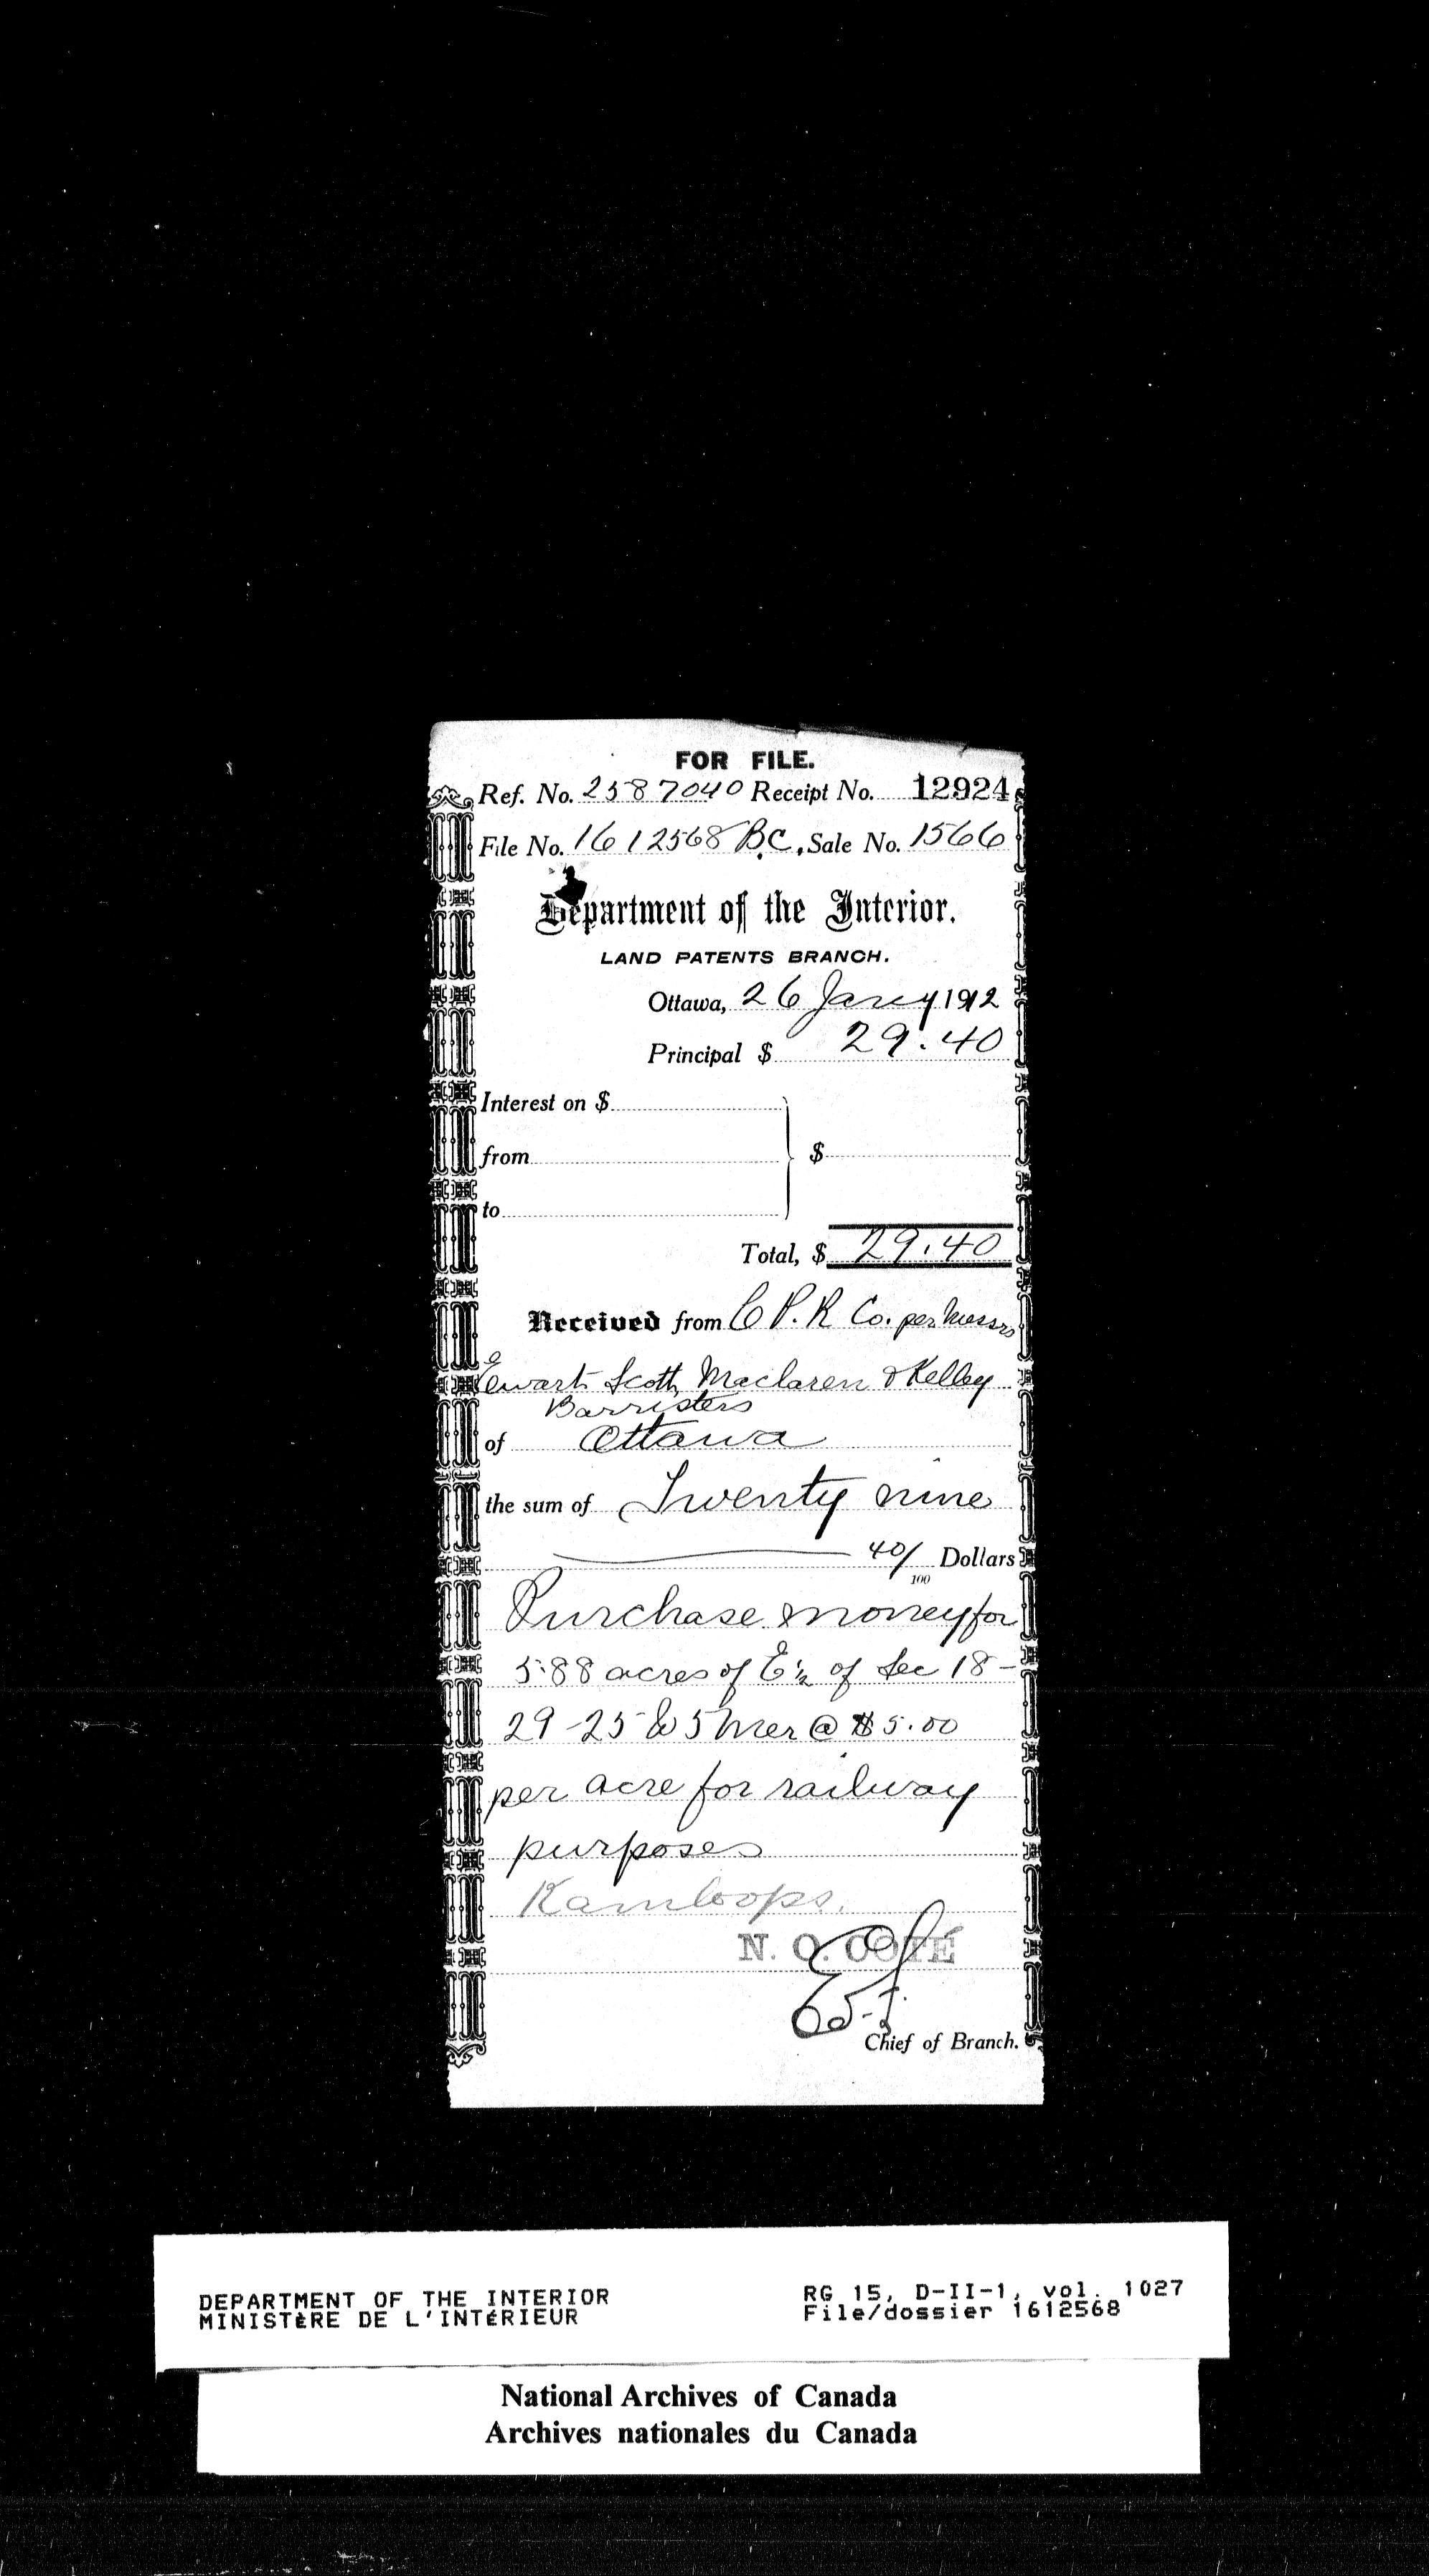 FOR FILE.
Ref. No. 2587040 Receipt No. 12924
File No. 1612568 B.C. Sale No. 1566
Department of the Interior.
LAND PATENTS BRANCH.
Ottawa, 26 Jany 1912
Principal $ 29.40
Interest on $
from $
to
Total, $ 29.40
Received from C P. R Co. per Messrs
Ewart Scott Maclaren & Kelley
Barristers
of Ottawa
the sum of Twenty nine
40/100 Dollars
Purchase money for
5.88 acres of E ½ of Sec 18-
29-25 W 5 Mer @ $5.00
per acre for railway
purposes
Kamloops.
N. O. COTÉ
Chief of Branch.
DEPARTMENT OF THE INTERIOR RG 15, D-II-1, vol. 1027
MINISTÈRE DE L'INTÉRIEUR File/dossier 1612568
National Archives of Canada
Archives nationales du Canada